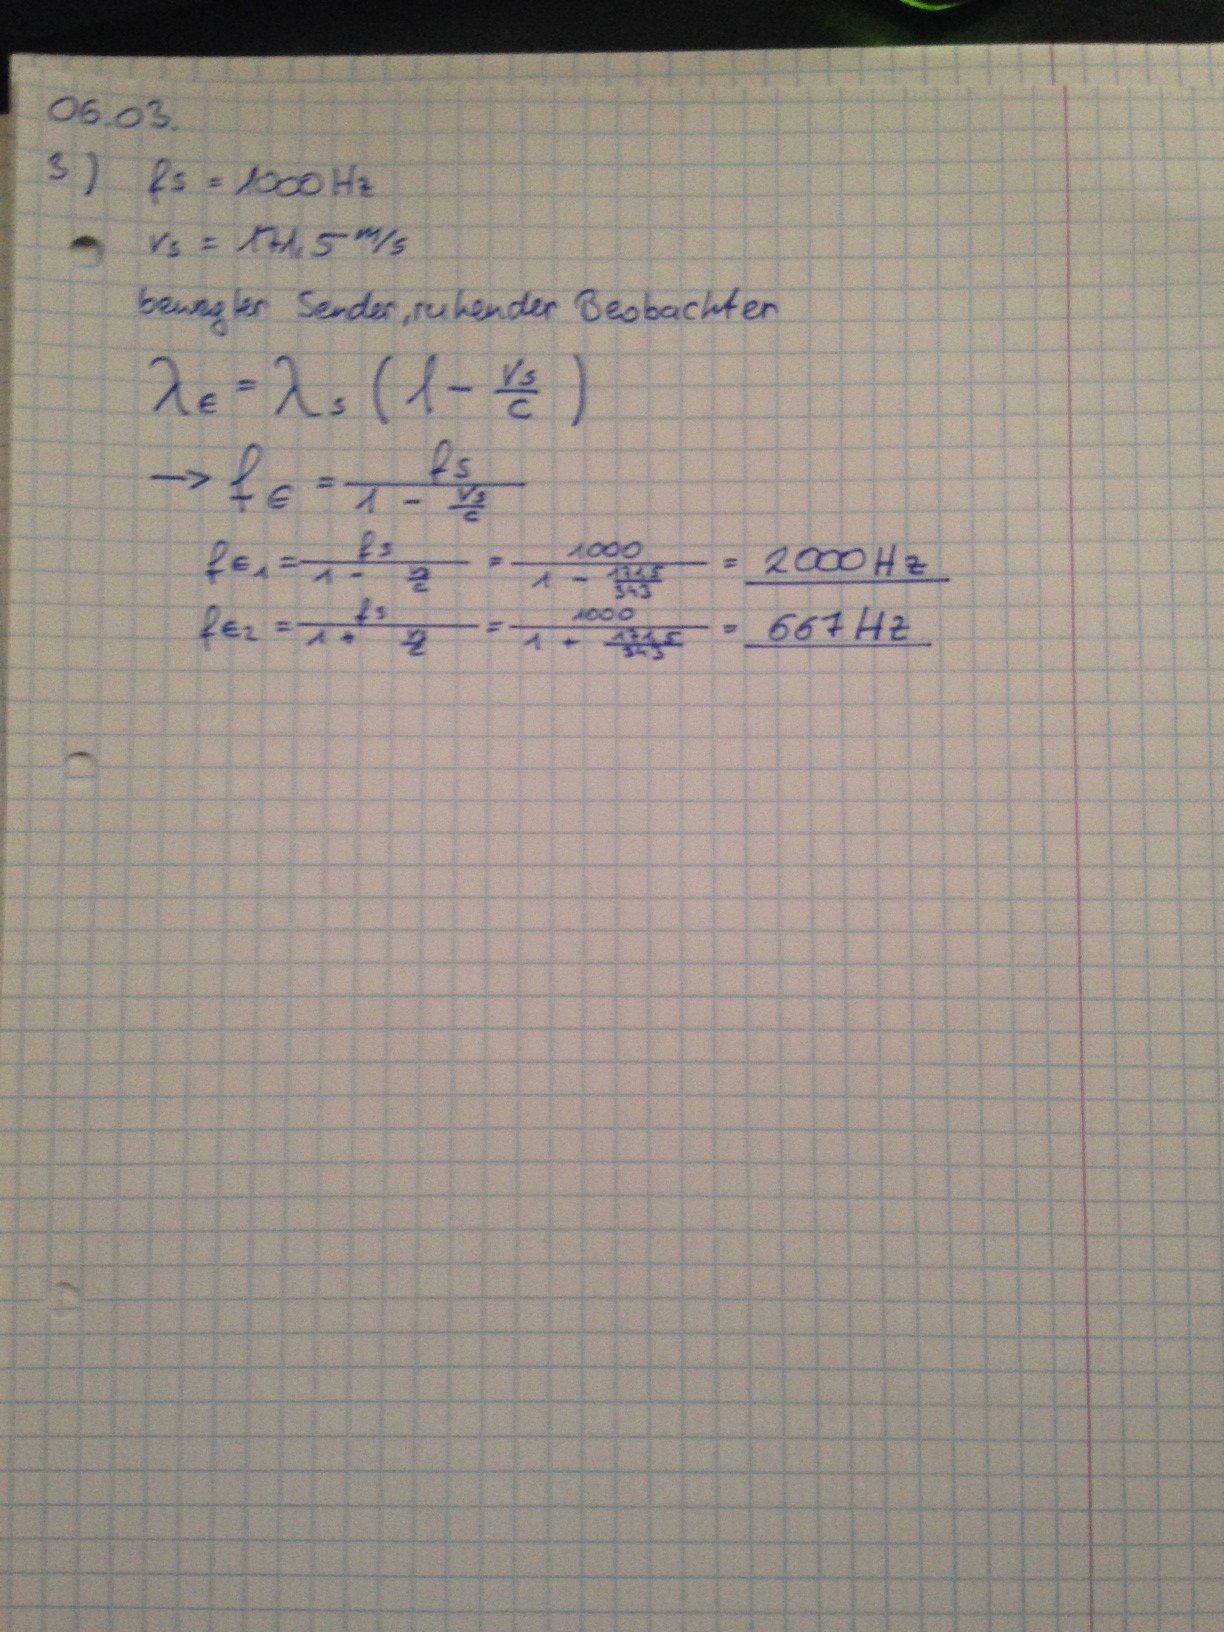 06.03.
3) fs = 1000 Hz
vs = 171,5 m/s
bewegter Sender, ruhender Beobachter
λ_E = λ_s (1 - vs/c)
→ f_E = fs / (1 - vs/c)
f_E1 = fs / (1 - vs/c) = 1000 / (1 - 171,5/343) = 2000 Hz
f_E2 = fs / (1 + vs/c) = 1000 / (1 + 171,5/343) = 667 Hz